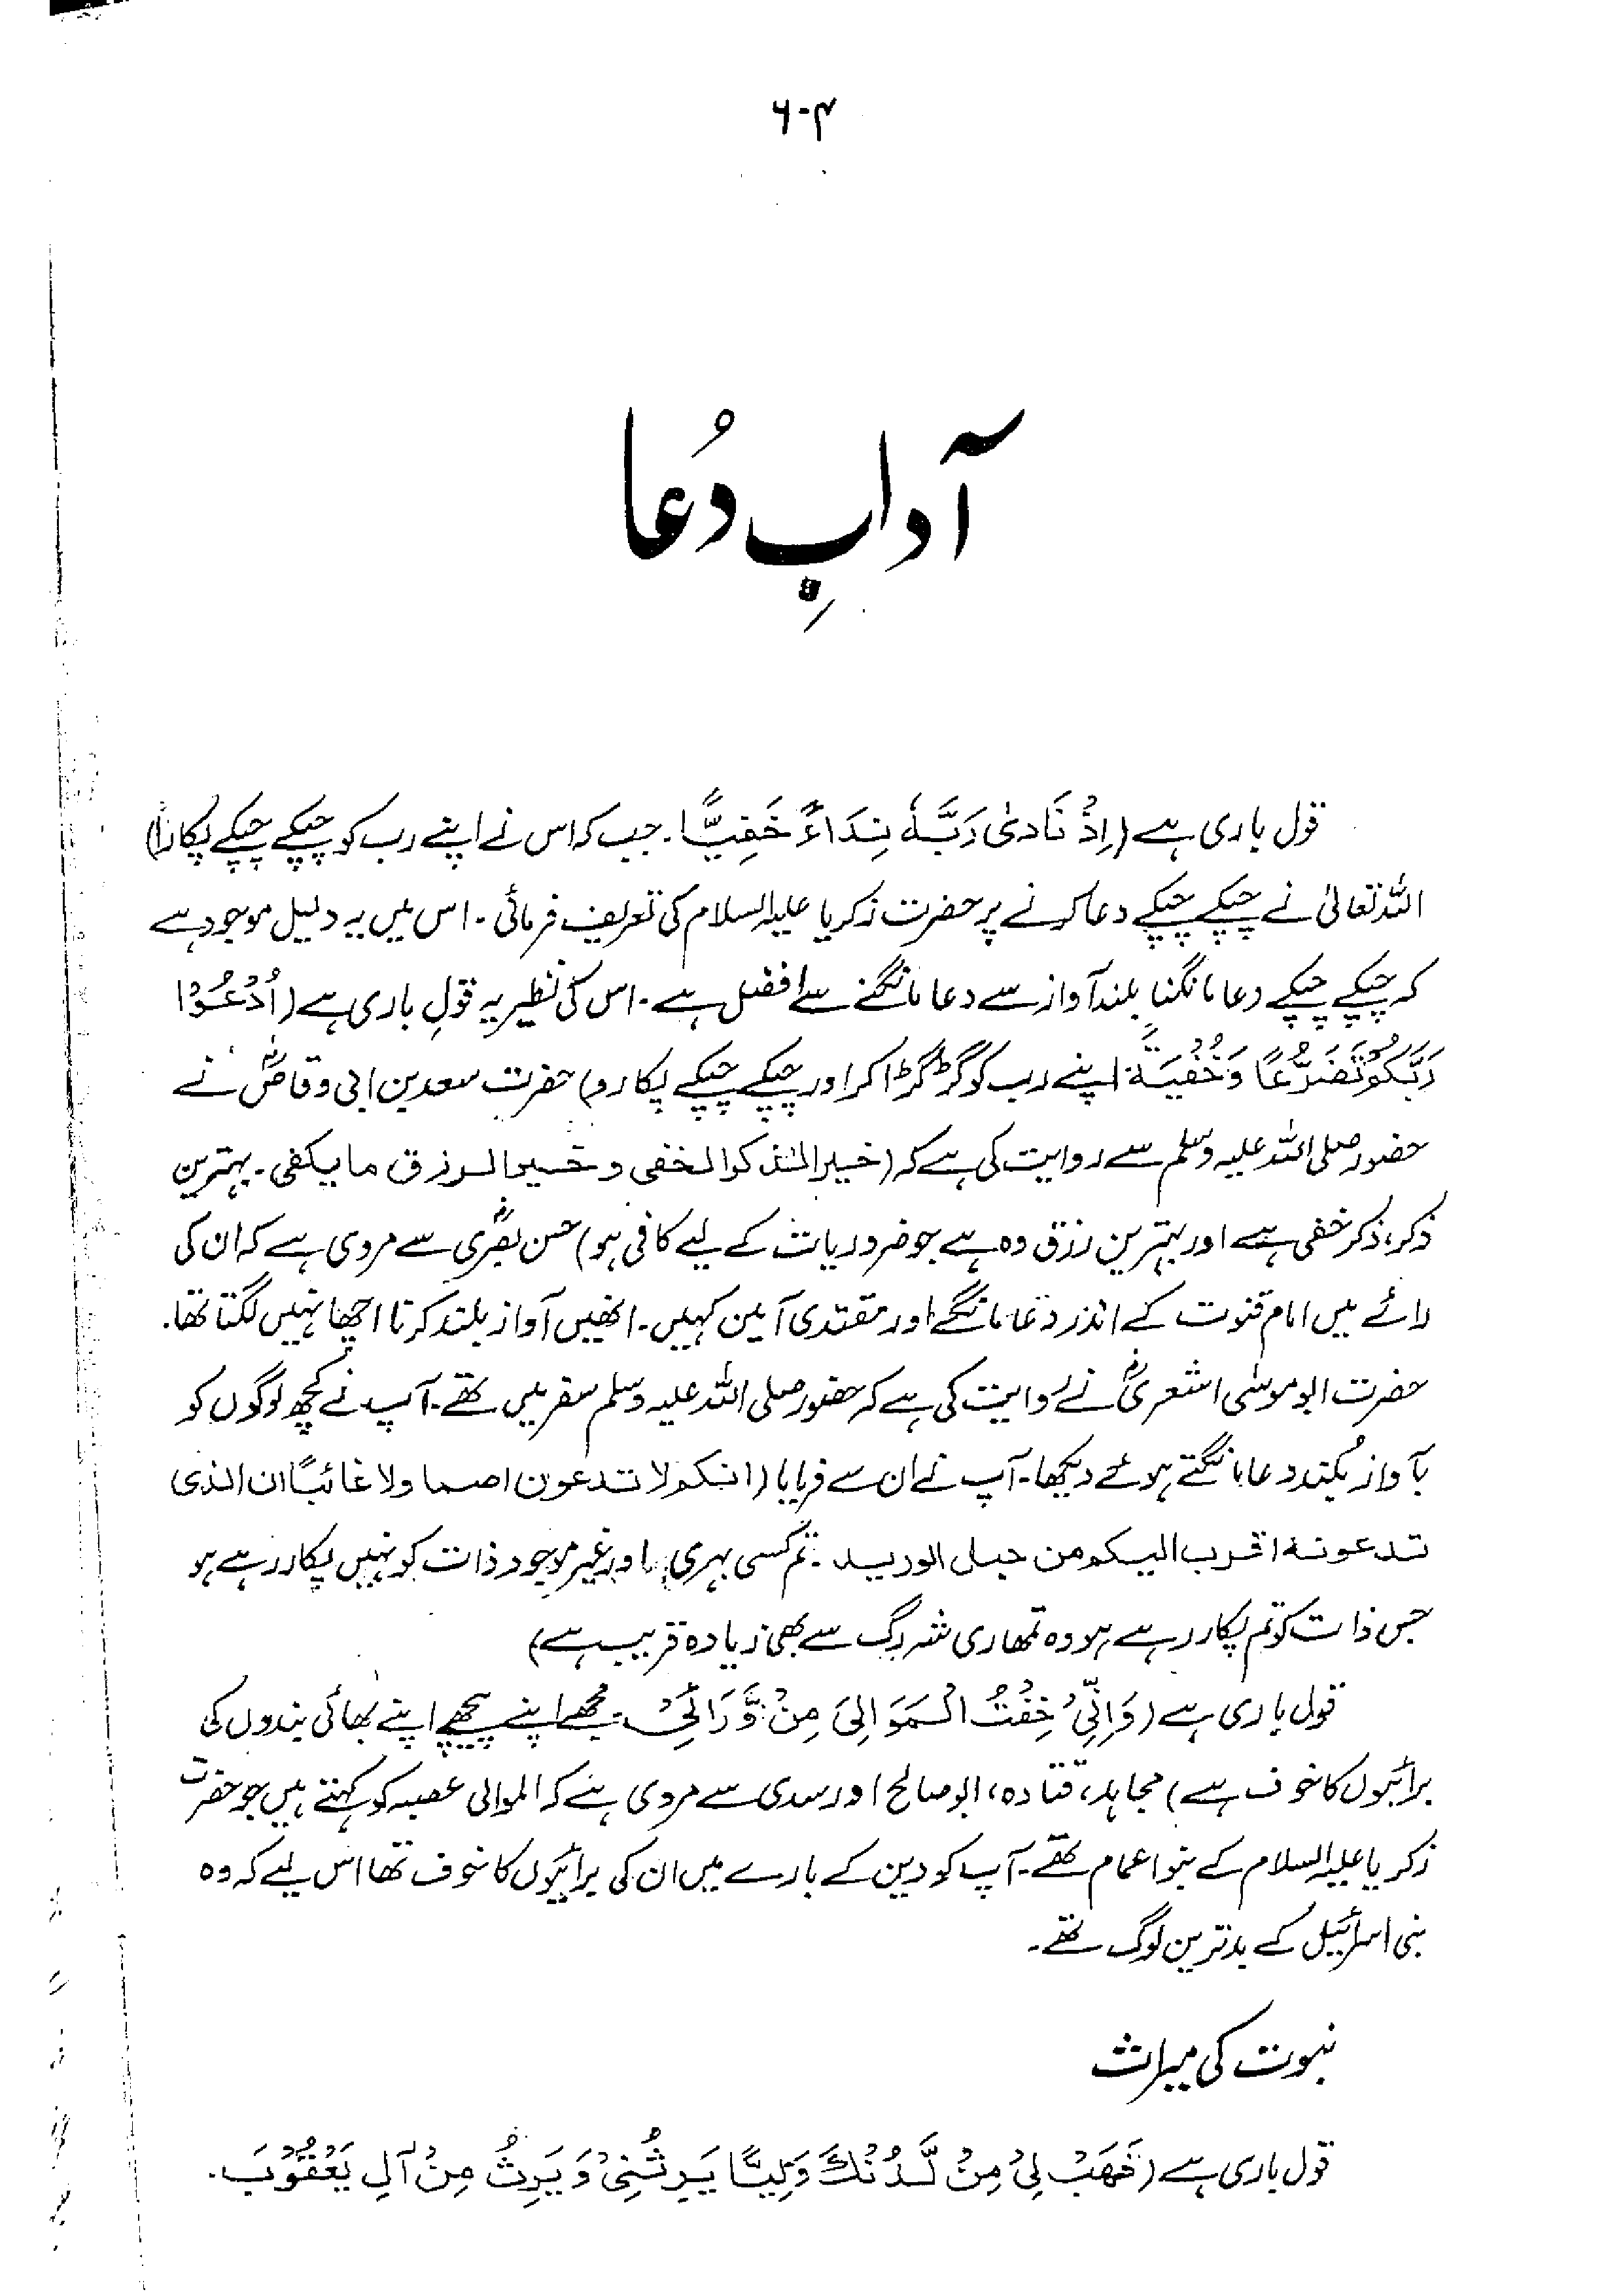 ۶۰۴
آدابِ دُعا
قول باری ہے (اِذْ نَادىٰ رَبَّهٗ نِدَاءً خَفِيًّا۔ جب کہ اس نے اپنے رب کو چپکے چپکے پکارا)
اللہ تعالیٰ نے چپکے چپکے دعا کرنے پر حضرت زکریا علیہ السلام کی تعریف فرمائی۔ اس میں یہ دلیل موجود ہے
کہ چپکے چپکے دعا مانگنا بلند آواز سے دعا مانگنے سے افضل ہے۔ اس کی نظیر یہ قولِ باری ہے (اُدْعُوْا
رَبَّكُوْ تَضَرُّعًا وَّخُفْيَةً اپنے رب کو گڑگڑا کر اور چپکے چپکے پکارو) حضرت سعد بن ابی وقاصؓ نے
حضور صلی اللہ علیہ وسلم سے روایت کی ہے کہ (خیر الذکر الخفی و خیر الرزق ما یکفی۔ بہترین
ذکر، ذکر خفی ہے اور بہترین رزق وہ ہے جو ضروریات کے لیے کافی ہو) حسن بصریؒ سے مروی ہے کہ ان کی
رائے میں امام قنوت کے اندر دعا مانگے اور مقتدی آمین کہیں۔ انھیں آواز بلند کرنا اچھا نہیں لگتا تھا۔
حضرت ابوموسٰی اشعریؓ نے روایت کی ہے کہ حضور صلی اللہ علیہ وسلم سفر میں تھے۔ آپ نے کچھ لوگوں کو
بآواز بُلند دعا مانگتے ہوئے دیکھا۔ آپ نے ان سے فرمایا (انکم لا تدعون اصما ولا غائبًا ان الذی
تدعونہ اقرب الیکم من حبل الورید۔ تم کسی بہری اور غیر موجود ذات کو نہیں پکار رہے ہو
جس ذات کو تم پکار رہے ہو وہ تمھاری شہ رگ سے بھی زیادہ قریب ہے)
قول باری ہے (وَاِنِّيْ خِفْتُ الْمَوَالِيَ مِنْ وَّرَائِيْ۔ مجھے اپنے پیچھے اپنے بھائی بندوں کی
برائیوں کا خوف ہے) مجاہد، قتادہ، ابوصالح اور سدی سے مروی ہے کہ الموالی عصبہ کو کہتے ہیں جو حضرت
زکریا علیہ السلام کے بنو اعمام تھے۔ آپ کو دین کے بارے میں ان کی برائیوں کا خوف تھا اس لیے کہ وہ
بنی اسرائیل کے بدترین لوگ تھے۔
نبوت کی میراث
قول باری ہے (فَهَبْ لِيْ مِنْ لَّدُنْكَ وَلِيًّا يَرِثُنِيْ وَيَرِثُ مِنْ آلِ يَعْقُوْبَ۔